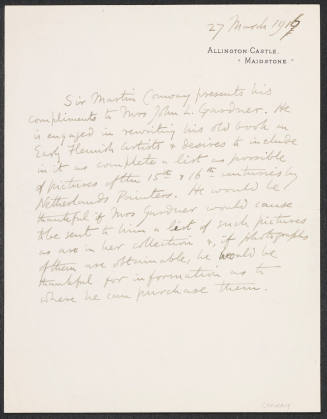 27 March 1916
ALLINGTON CASTLE.
MAIDSTONE
Sir Martin Conway presents his
compliments to Mrs John L. Gardner. He
is engaged in rewriting his old book on
Early Flemish Artists & desires to include
in it as complete a list as possible
of pictures of the 15th & 16th centuries by
Netherlands Painters. He would be
thankful if Mrs Gardner would cause
to be sent to him a list of such pictures
as are in her collection &, if photographs
of them are obtainable, he would be
thankful for information as to
where he can purchase them.